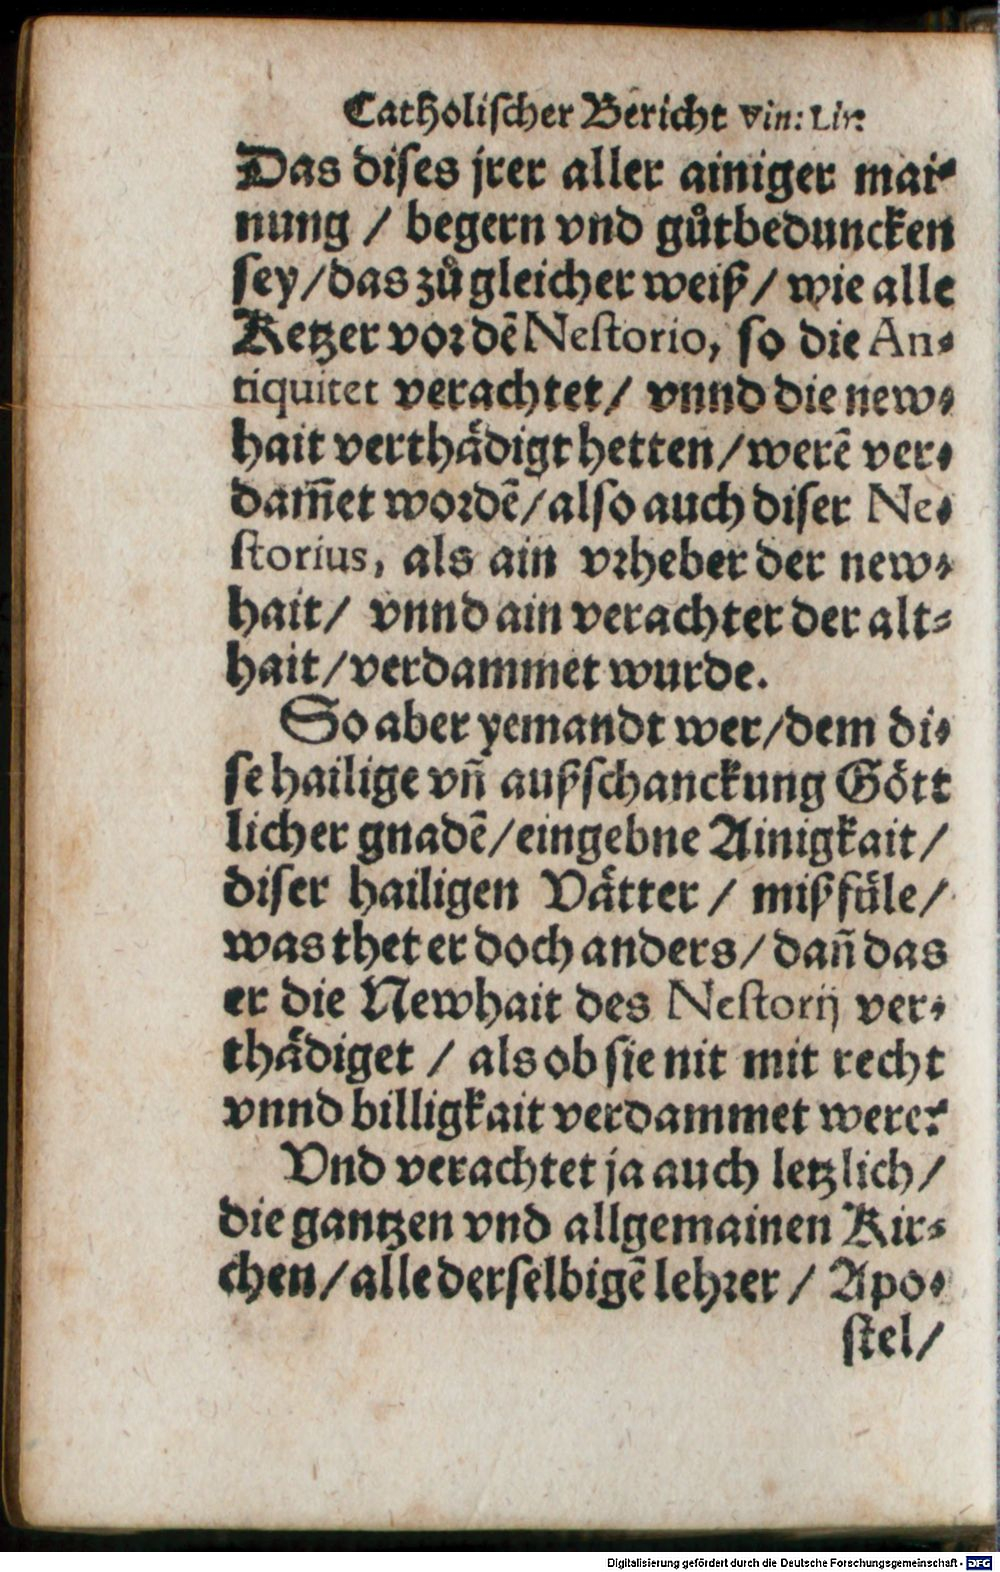 Catholischer Bericht Vin: Lir:
Das dises jrer aller ainiger mai⸗
nung / begern vnd gůtbeduncken
sey/das zů gleicher weiß/ wie alle
Ketzer vor dẽ Nestorio, so die An⸗
tiquitet verachtet/ vnnd die new⸗
hait verthädigt hetten/werẽ ver⸗
dam̃et wordẽ/also auch diser Ne⸗
storius, als ain vrheber der new⸗
hait/ vnnd ain verachter der alt⸗
hait/verdammet wurde.
So aber yemandt wer/dem di⸗
se hailige vñ außschanckung Gött
licher gnadẽ/eingebne Ainigkait/
diser hailigen Vätter / mißfüle/
was thet er doch anders/ dañ das
er die Newhait des Nestorij ver⸗
thädiget / als ob sie nit mit recht
vnnd billigkait verdammet were?
Vnd verachtet ja auch letzlich/
die gantzen vnd allgemainen Kir⸗
chen/alle derselbigẽ lehrer / Apo⸗
stel/
Digitalisierung gefördert durch die Deutsche Forschungsgemeinschaft - DFG